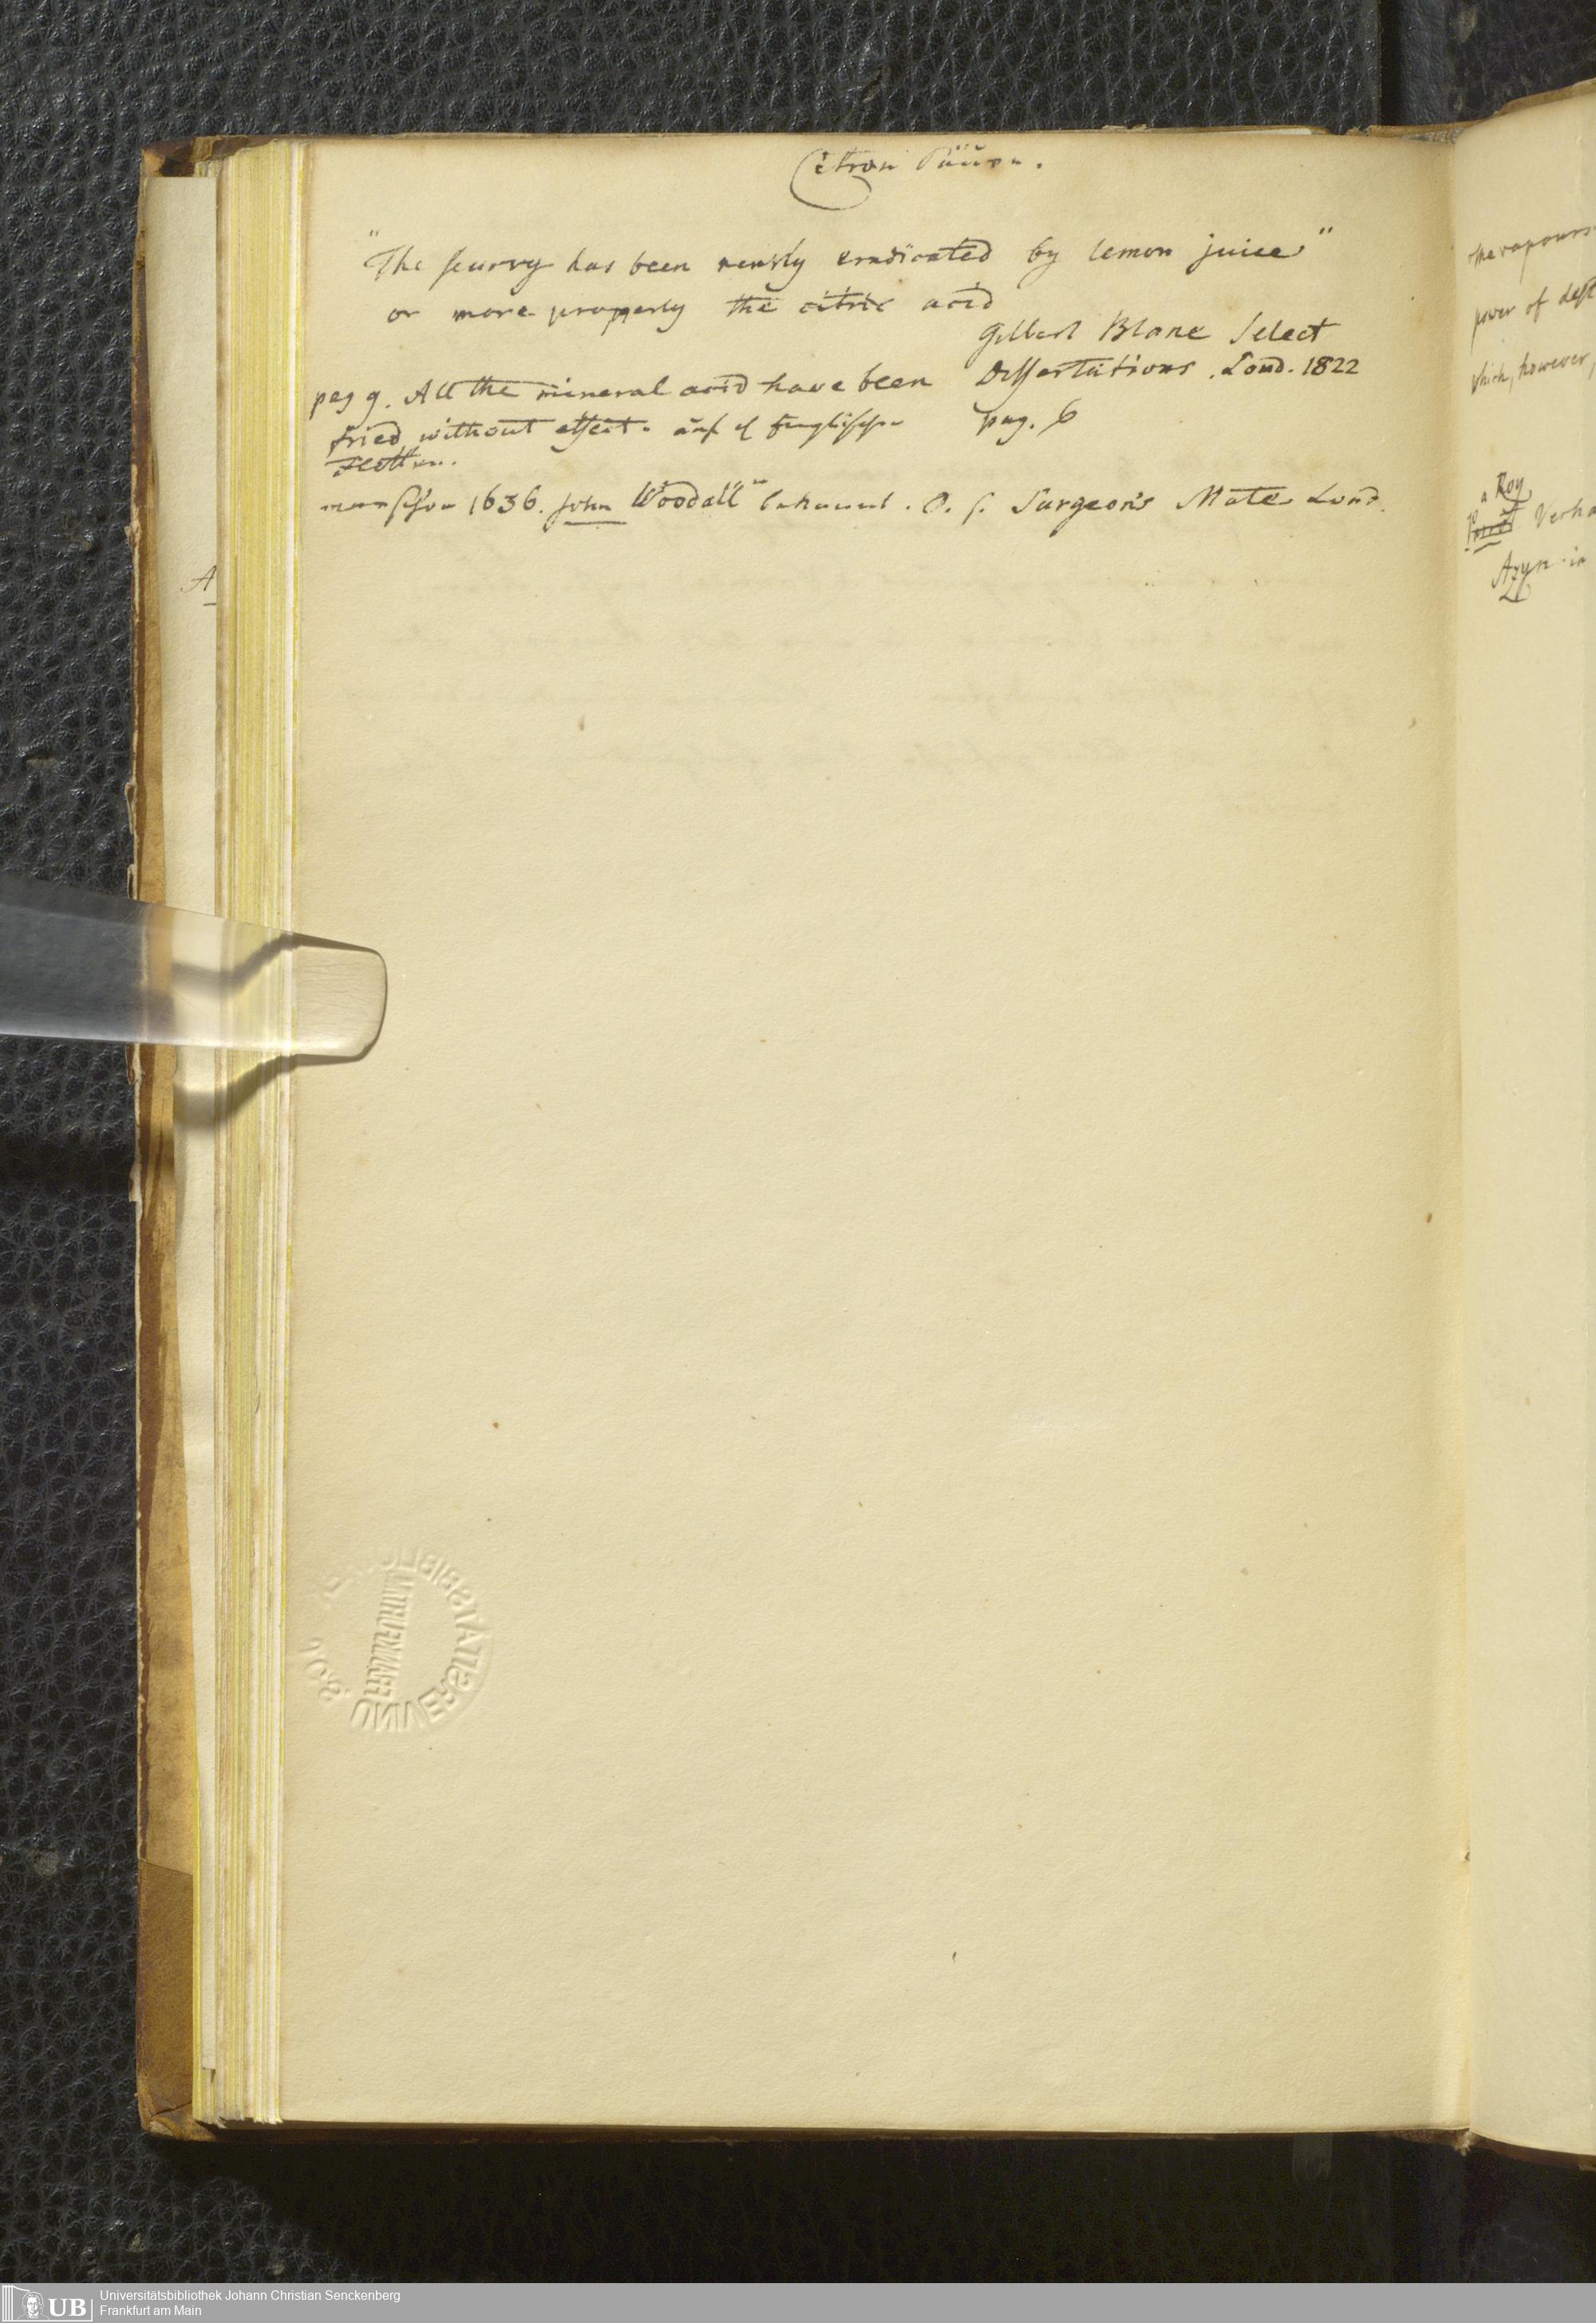 Citron Säure.
"The scurvy has been newly eradicated by lemon juice"
or more properly the citric acid
Gilbert Blane Select
Dissertations. Lond. 1822
pag. 6
pag 9. All the mineral acid have been
tried without effect. auf d englischen
Flotten.
schon 1636. John Woodall bekannt. S. Surgeon's Mate Lond.
A
the vapours
power of
which, however,
a Roy
Verha
Azyn in
UNIVERSITÄTSBIBL
FRANKFURT
UB
Universitätsbibliothek Johann Christian Senckenberg
Frankfurt am Main